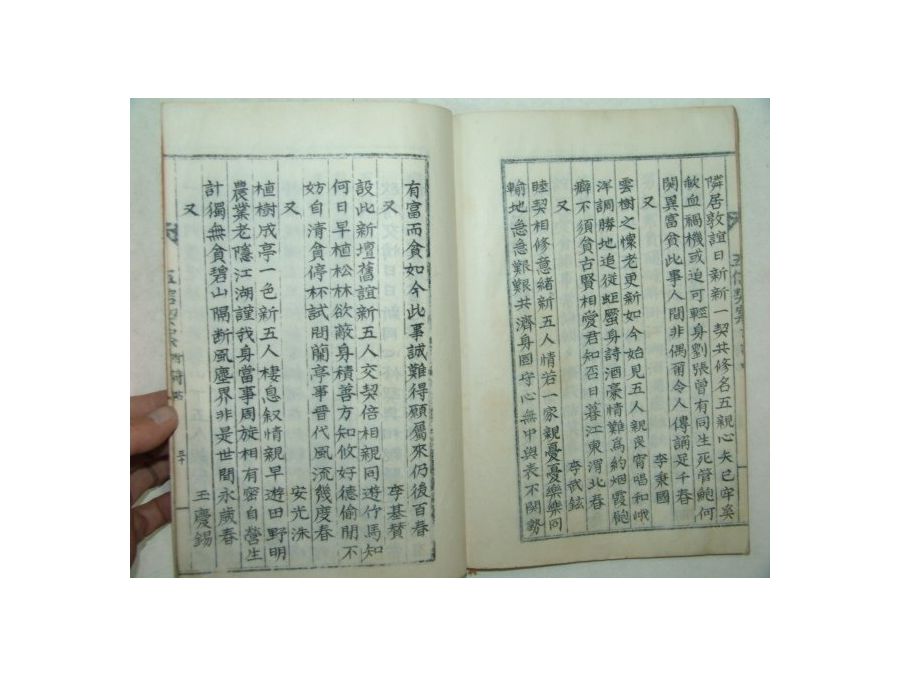 隣居敦誼日新新一契共修名五親心矢已牢奚
歃血禍機或迫可輕身劉張曾有同生死管鮑何
関異富貧此事人間非偶爾令人傳誦足千春
又 李秉國
雲樹之懷老更新如今始見五人親良唱和峨
洋調勝地追從蚷蛩身詩酒豪情難為約烟霞飽
癖不須貧古賢相愛君知否日暮江東渭北春
又 李武鉉
睦契相修意緒新五人情若一家親憂憂樂樂同
輸地急急難難共濟身固守心無中與表不関勢
有富而貧如今此事誠難得願屬來仍後百春
又 李基賛
設此新壇舊誼新五人交契倍相親同遊竹馬知
何日早植松林欲蔽身積善方知攸好德偷閒不
妨自清貧停杯試問蘭亭事晉代風流幾度春
又 安光洙
植樹成亭一色新五人棲息叙情親早遊田野明
農業老隱江湖謹我身當事周旋相有密自營生
計獨無貧碧山隔断風塵界非是世間永歲春
又 王慶錫
三十